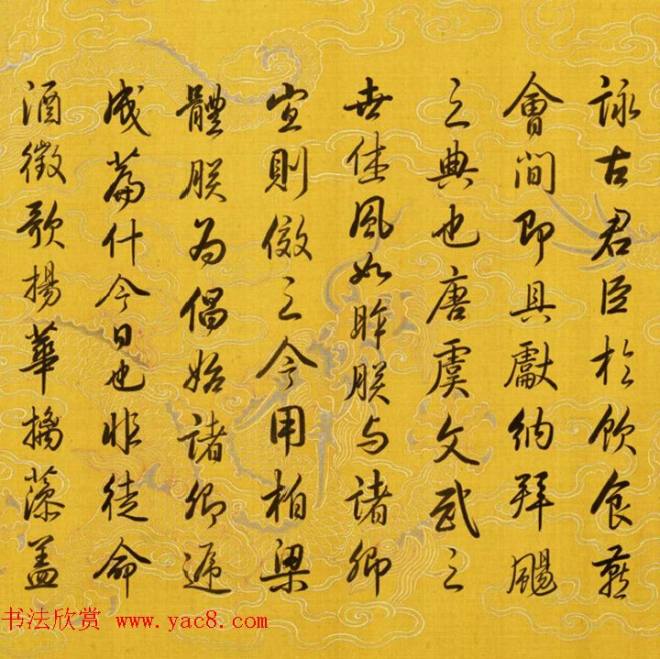 詠古君臣於飲食燕
會間即具獻納拜颺
之典也唐虞文武之
世佳風如昨朕与諸卿
宜則倣之今用柏梁
體朕為倡始諸卿遞
成篇什今日也非徒命
酒徵歌揚華摛藻蓋
书法欣赏 www.yac8.com